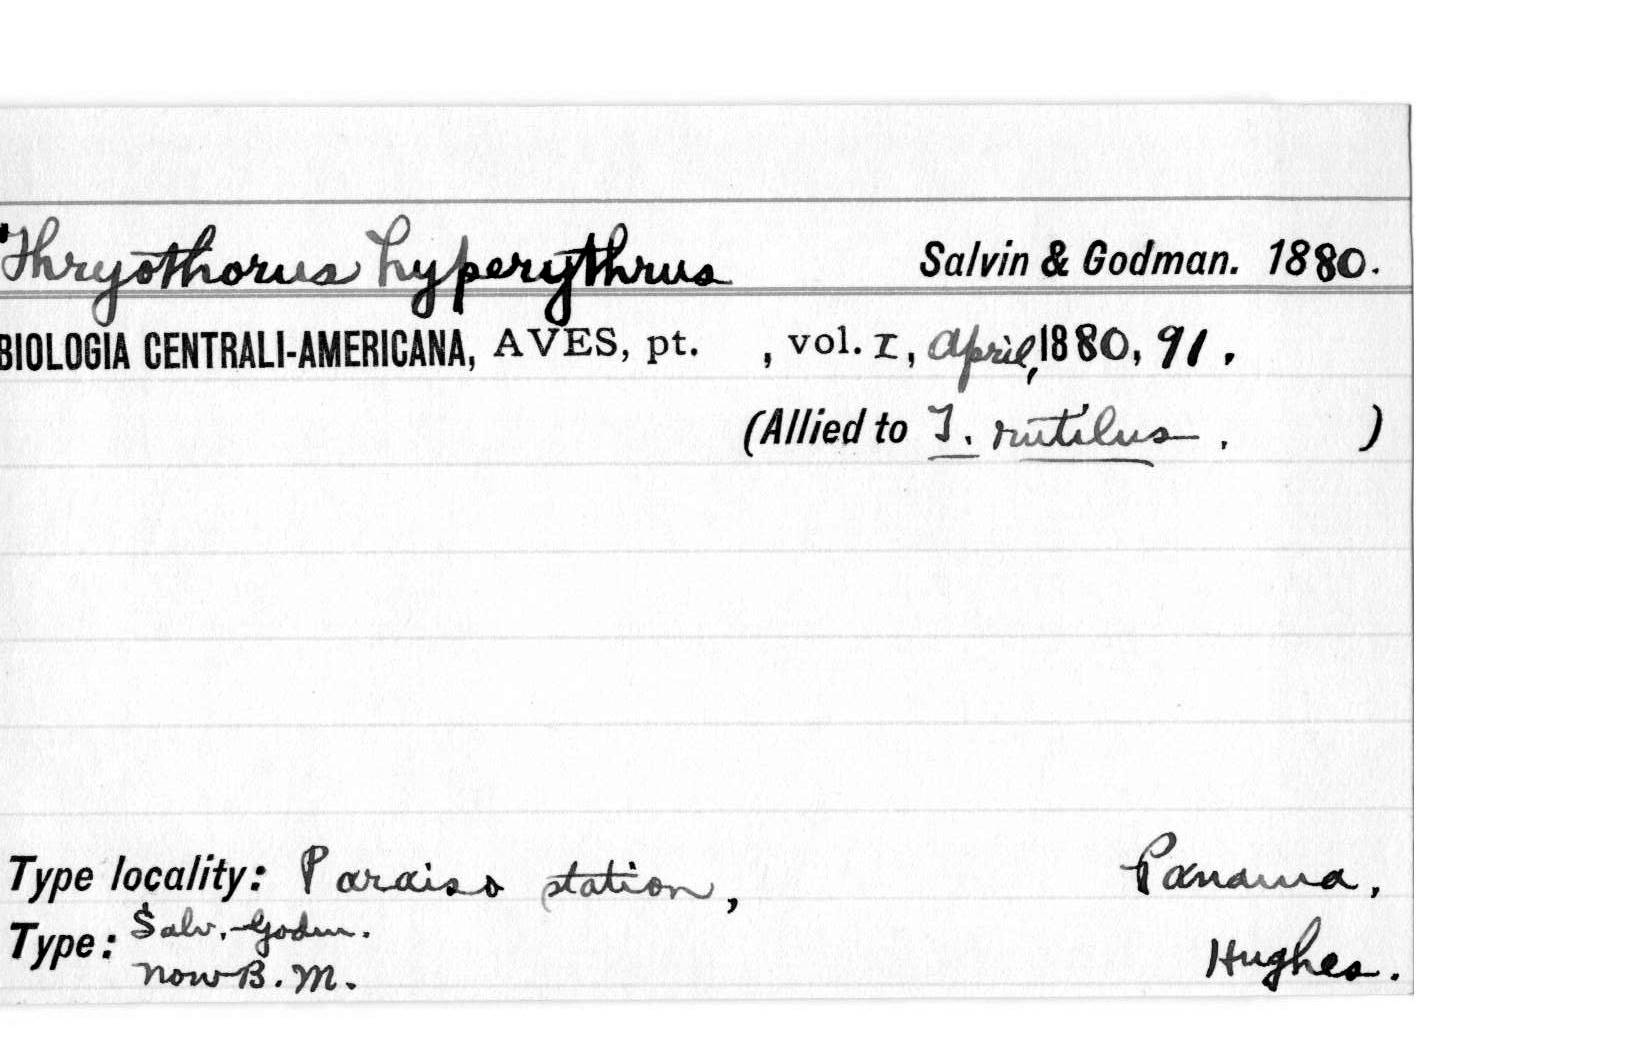 Thryothorus hyperythrus Salvin & Godman. 1880.
BIOLOGIA CENTRALI-AMERICANA, AVES, pt. , vol. I, April, 1880, 91.
(Allied to T. rutilus. )
Type locality: Paraiso station, Panama,
Type: Salv.-Godm.
now B. M. Hughes.